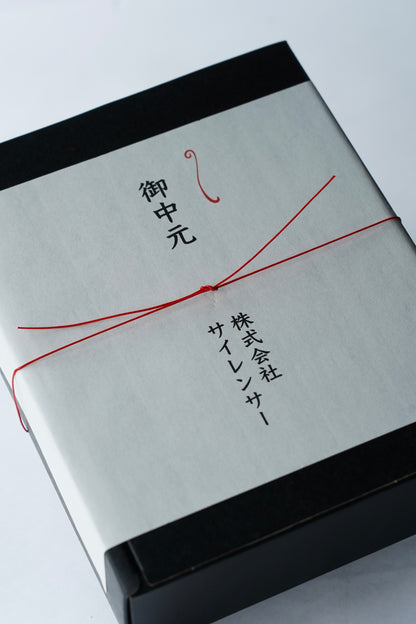 御中元
株式会社
サイレンサー